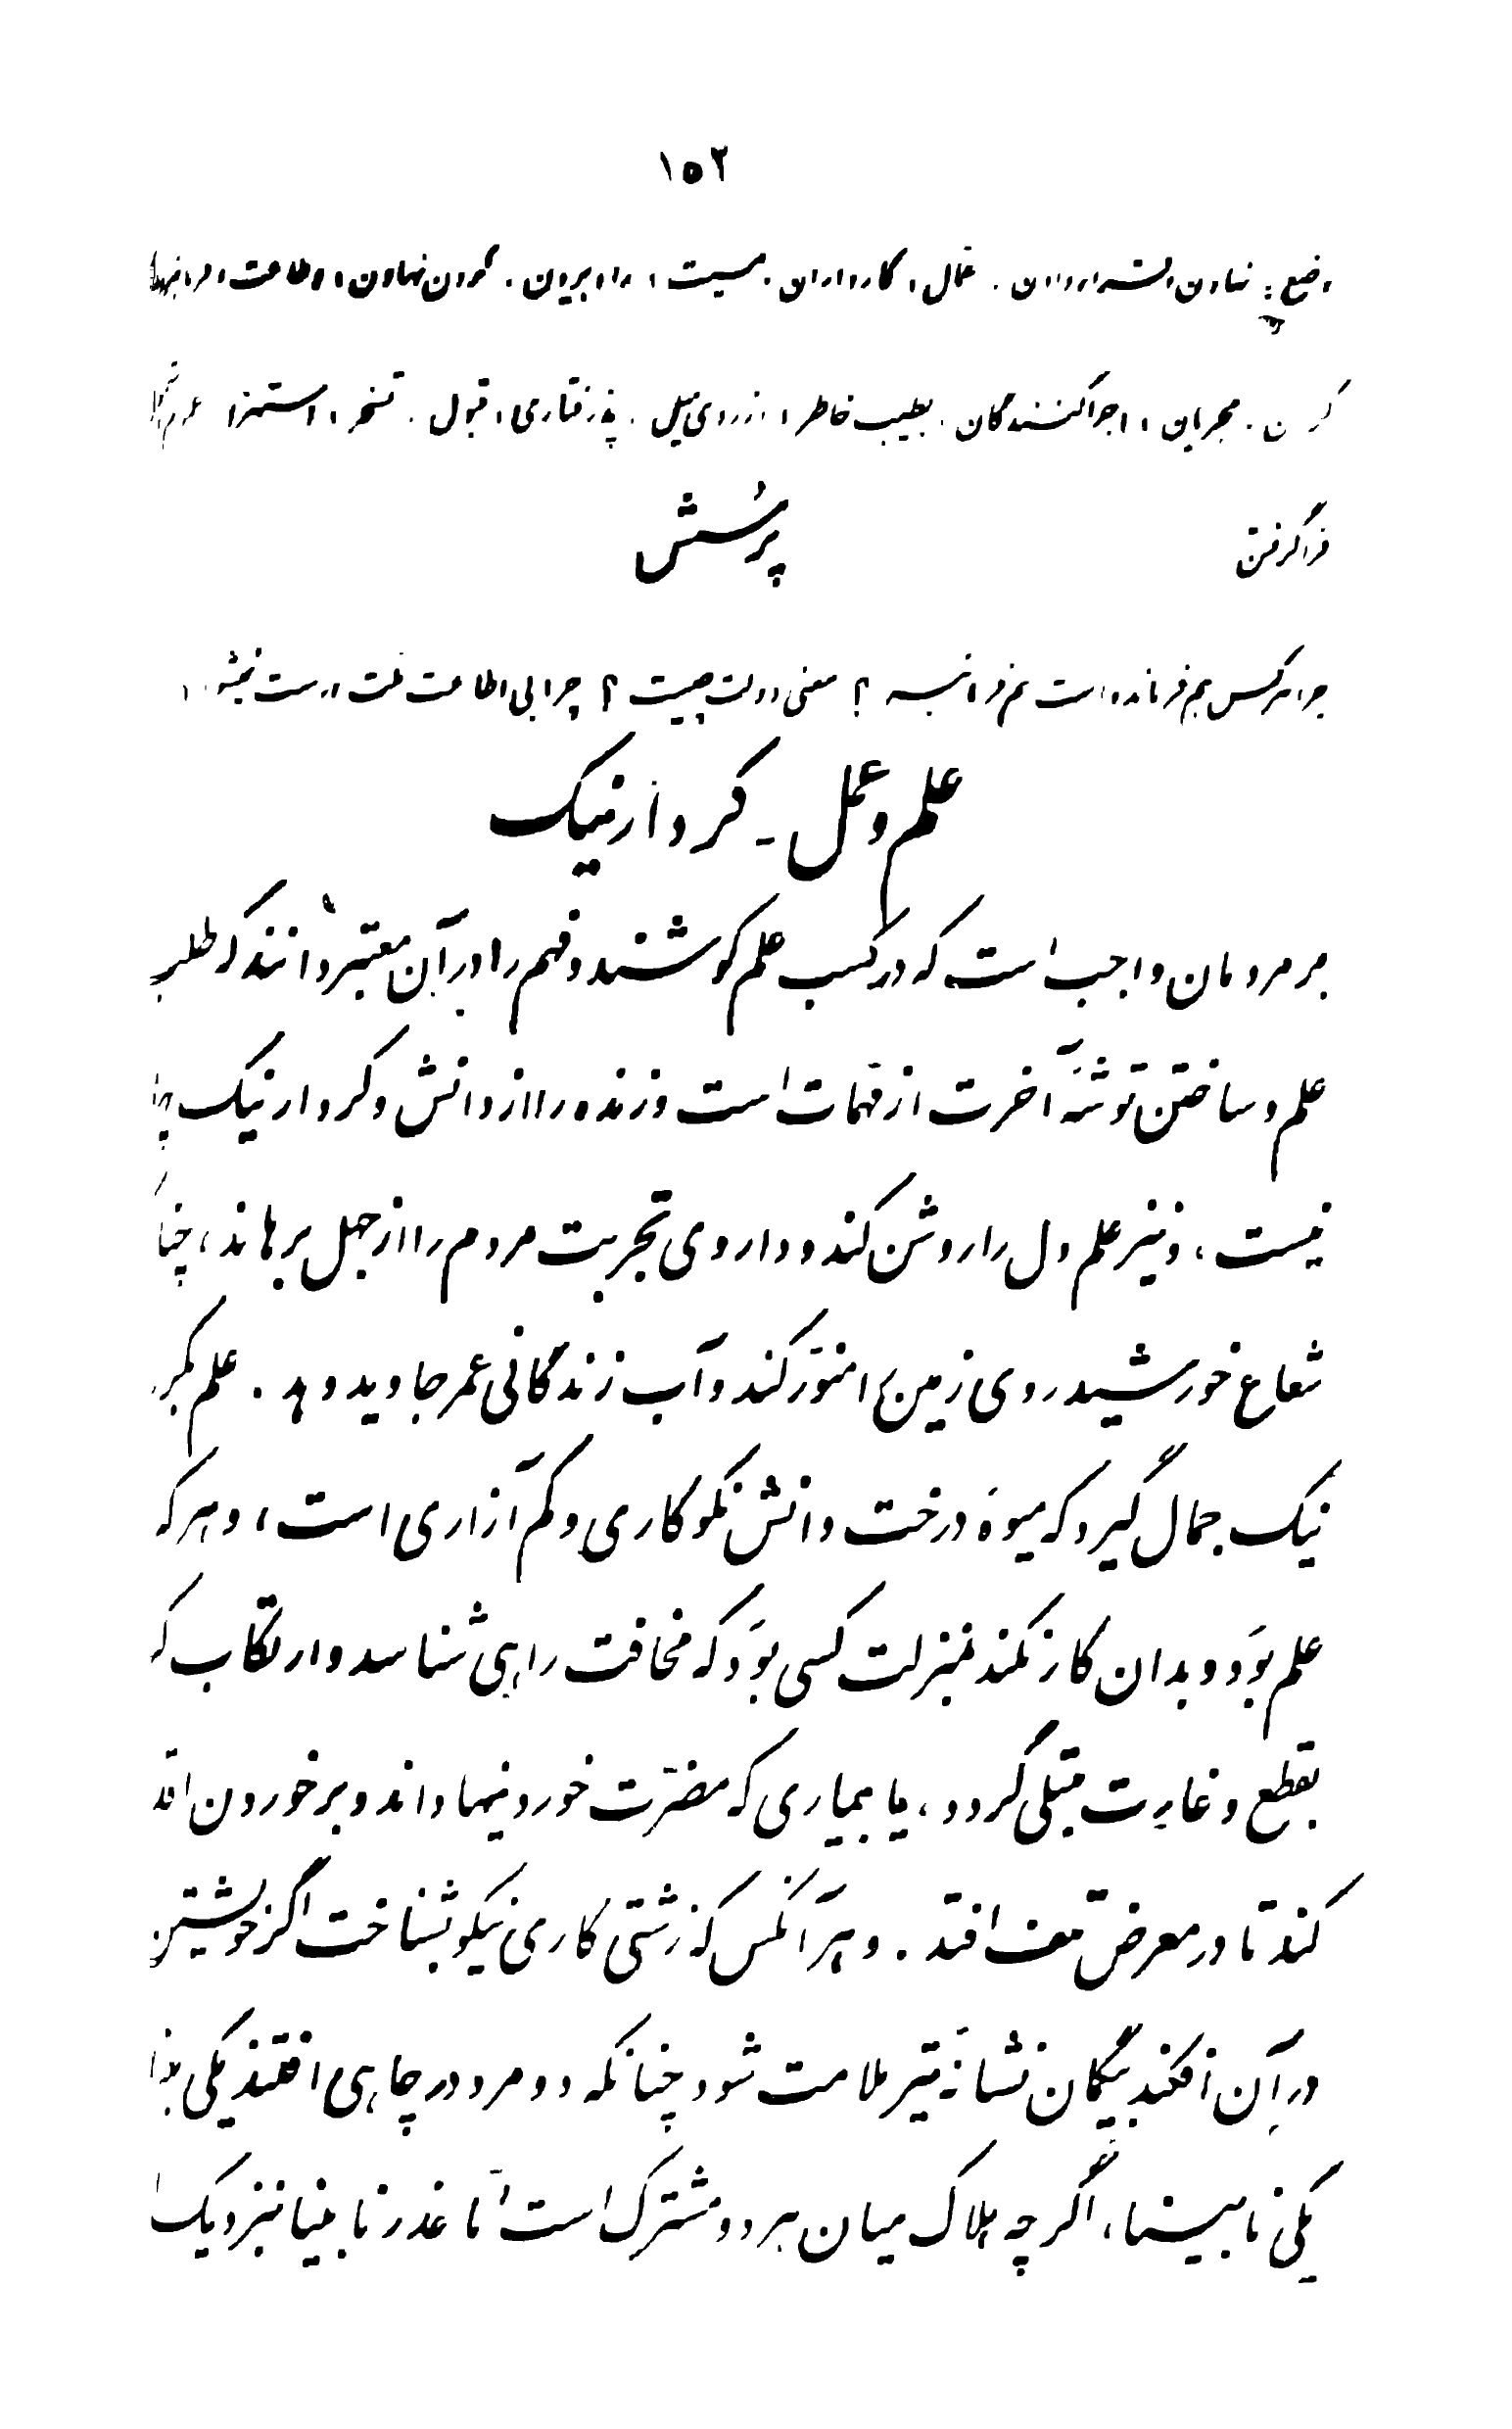 ۱۵۲
وضع : نهادن . عمال ، کارداران . گردن نهادن ، اطاعت
مجریان ، اجرا کنندگان . بطیب خاطر ، از روی میل . پذرفتاری ، قبول . تسخر ، استهزا
فرا گرفتن
پرسش
چرا هر کس هم فرمانده است هم فرمانبر ؟ معنی دولت چیست ؟ چرا بی اطاعت ملت درست نمیشود
علم و عمل - کردار نیک
بر مردمان واجب است که در کسب علم کوشند و فهم را در آن معتبر دانند که طلب
علم و ساختن توشهٔ آخرت از مهمات است و زنده را از دانش و کردار نیک
نیست ، و نیز علم دل را روشن کند و داروی تجربت مردم را از جهل برهاند ، چنا
شعاع خورشید روی زمین را منوّر کند و آب زندگانی عمر جاوید دهد . علم بکر
نیک جمال گیرد که میوهٔ درخت دانش نکوکاری و کم آزاری است ، و هر که
علم بوَد و بدان کار نکند بمنزلت کسی بوَد که مخافت راهی شناسد و ارتکاب ک
بقطع و غارت مبتلی گردد ، یا بیماری که مضرّت خوردنیها داند و بر خوردن اقد
کند تا در معرض تلف افتد . و هر آنکس که زشتی کاری نیکو بشناخت اگر خویشتن
در آن افکند بیگمان نشانهٔ تیر ملامت شود چنانکه دو مرد در چاهی افتند یکی
یکی نابینا ، اگر چه هلاک میان هر دو مشترک است امّا عذر نابینا بنزدیک